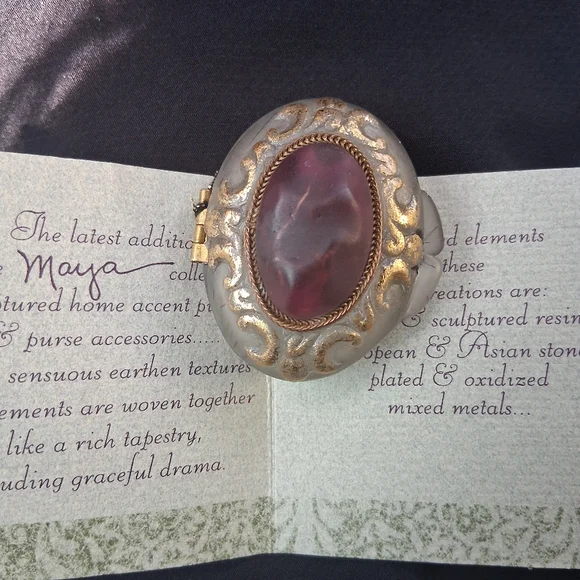 The latest additio
Maya colle
tured home accent p
& purse accessories.....
sensuous earthen textures
ements are woven together
like a rich tapestry,
uding graceful drama.
d elements
these
reations are:
& sculptured resin
opean & Asian stone
plated & oxidized
mixed metals...